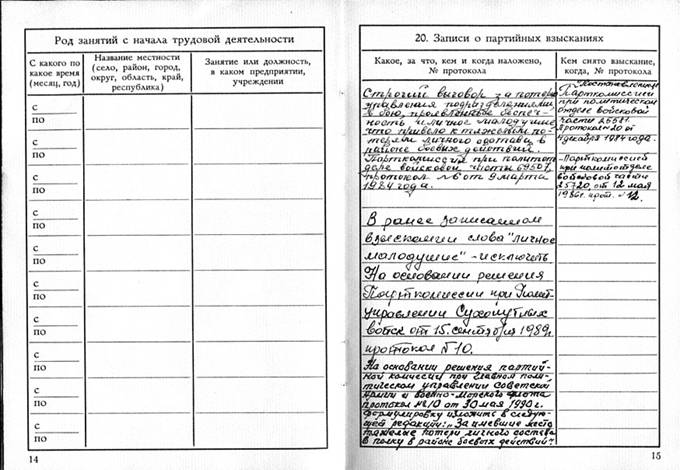 Род занятий с начала трудовой деятельности
С какого по
какое время
(месяц, год)
Название местности
(село, район, город,
округ, область, край,
республика)
Занятие или должность,
в каком предприятии,
учреждении
с
по
с
по
с
по
с
по
с
по
с
по
с
по
с
по
с
по
с
по
14
20. Записи о партийных взысканиях
Какое, за что, кем и когда наложено,
№ протокола
Кем снято взыскание,
когда, № протокола
Строгий выговор за потерю
управления подразделениями
в бою, проявленные беспеч-
ность и личное малодушие,
что привело к тяжелым по-
терям личного состава в
районе боевых действий.
Парткомиссия при политот-
деле войсковой части
протокол №6 от 9 марта
1984 года.
В ранее записанном
взыскании слова "личное
малодушие" - исключить
На основании решения
Парткомиссии при Полит-
управлении Сухопутных
войск от 15. сентября 1989г
протокол №10.
На основании решения партий-
ной комиссии при Главном поли-
тическом управлении Советской
Армии и Военно-Морского флота
протокол №10 от 30 мая 1990 г.
формулировку изложить в следую-
щей редакции: "За имевшие место
тяжелые потери личного состава
в полку в районе боевых действий".
Парткомиссии
при политическом
отделе войсковой
части
протокол №20 от
декабря 1984 года.
-Парткомиссией
при политотделе
войсковой части
25720, от 12 мая
1986г. прот. №12.
15